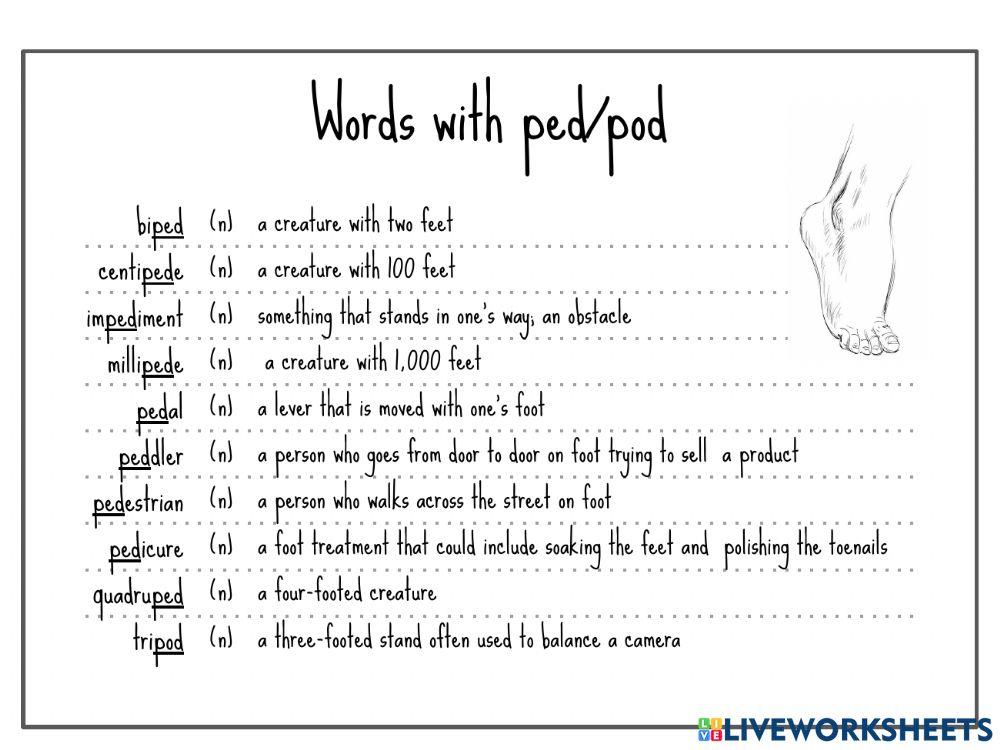 Words with ped/pod
biped (n) a creature with two feet
centipede (n) a creature with 100 feet
impediment (n) something that stands in one's way; an obstacle
millipede (n) a creature with 1,000 feet
pedal (n) a lever that is moved with one's foot
peddler (n) a person who goes from door to door on foot trying to sell a product
pedestrian (n) a person who walks across the street on foot
pedicure (n) a foot treatment that could include soaking the feet and polishing the toenails
quadruped (n) a four-footed creature
tripod (n) a three-footed stand often used to balance a camera
LIVE LIVEWORKSHEETS